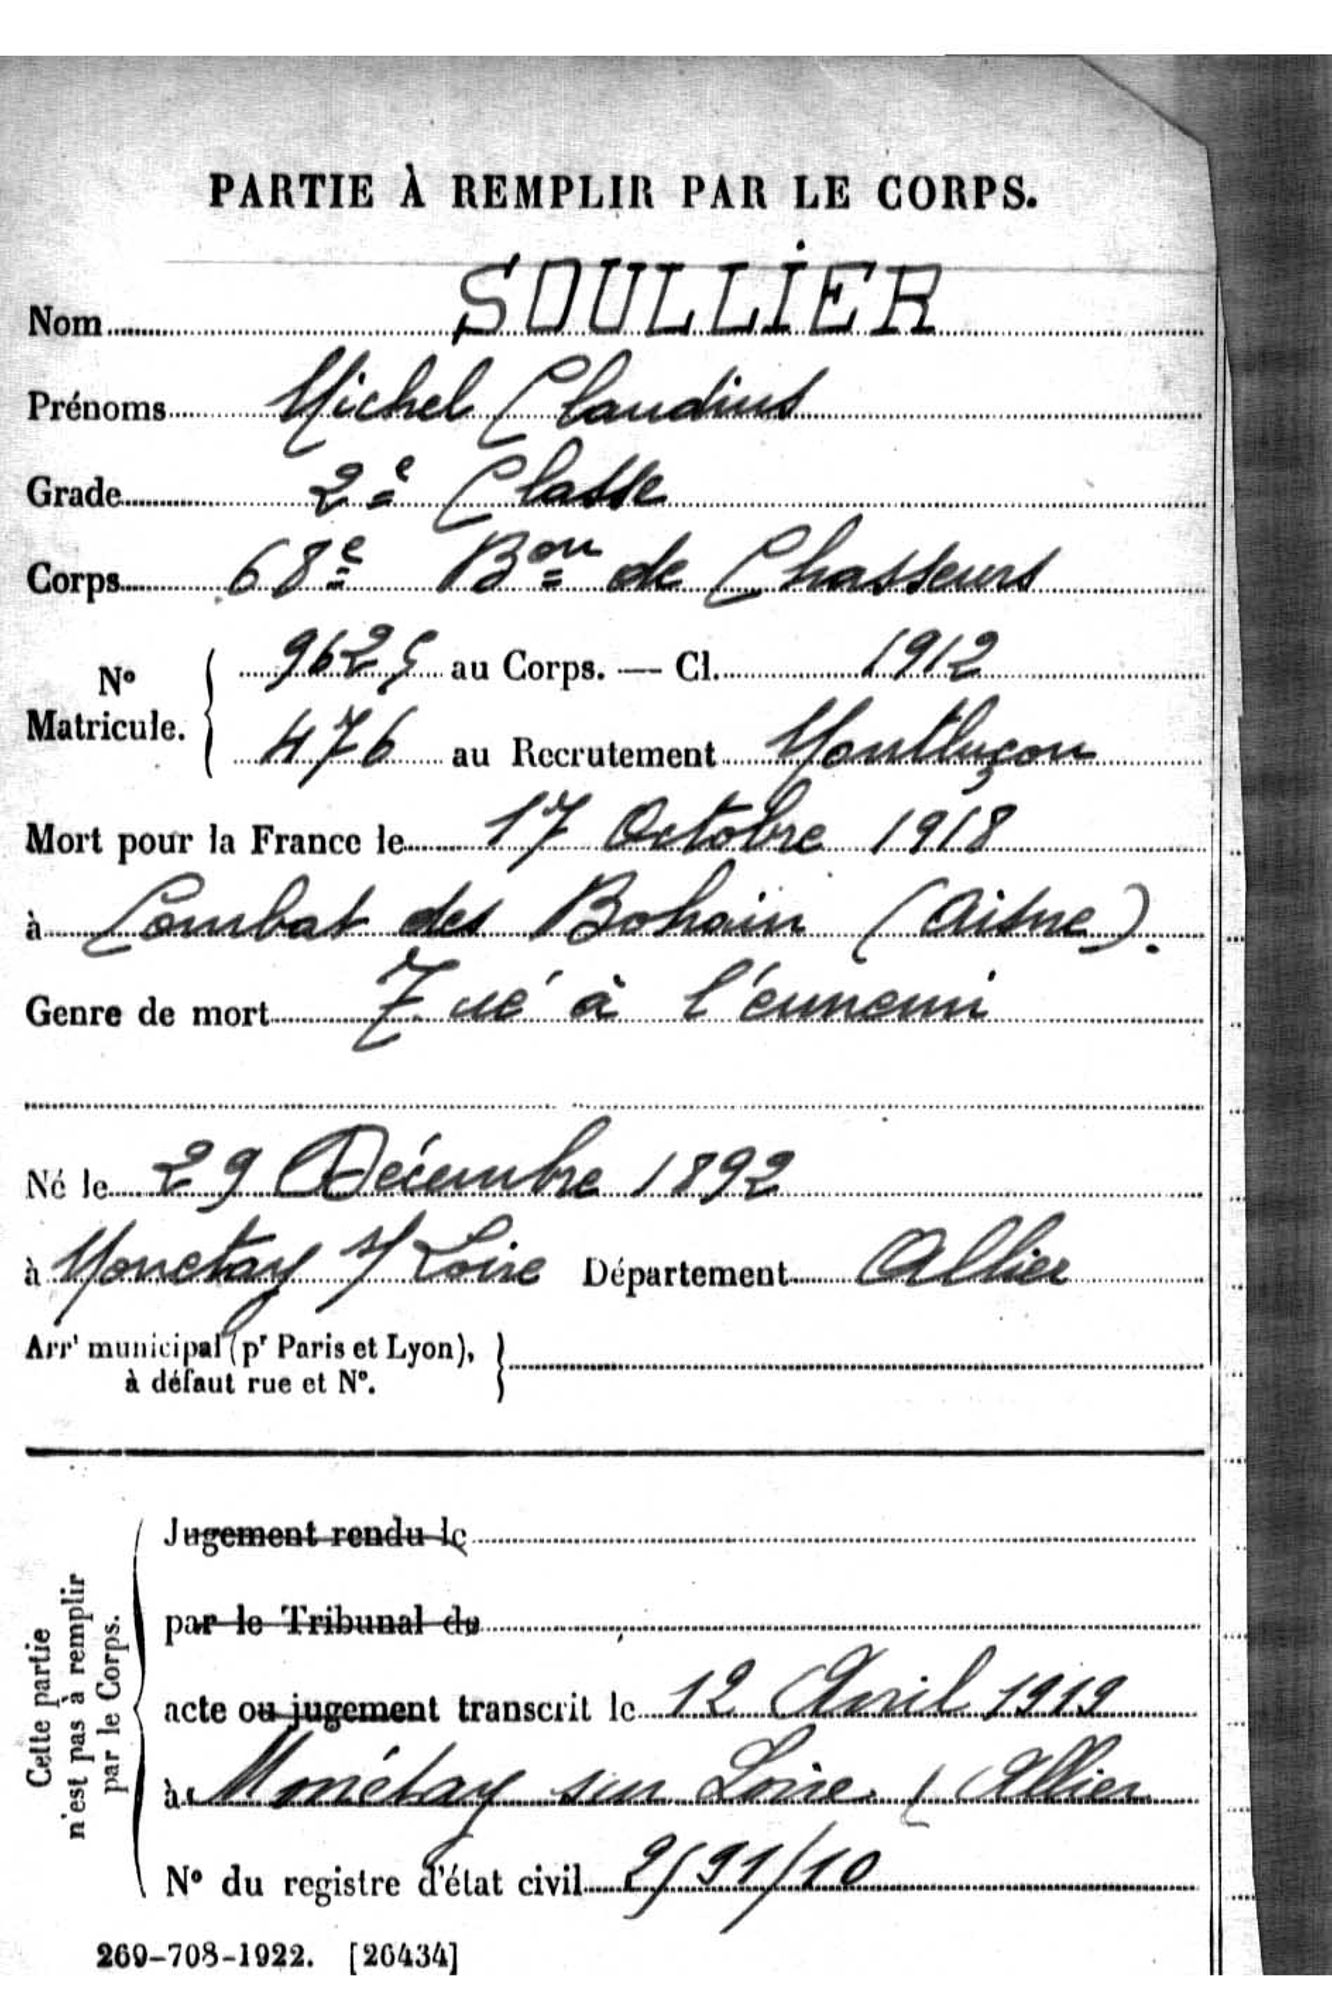 PARTIE À REMPLIR PAR LE CORPS.
Nom SOULLIER
Prénoms Michel Claudius
Grade 2e Classe
Corps 68e Bon de Chasseurs
No Matricule. 9625 au Corps. — Cl. 1912
476 au Recrutement Montluçon
Mort pour la France le 17 Octobre 1918
à Combat des Bohain (Aisne).
Genre de mort Tué à l'ennemi
Né le 29 Décembre 1892
à Monetay s/ Loire Département Allier
Arrt municipal (pr Paris et Lyon),
à défaut rue et No.
Cette partie
n'est pas à remplir
par le Corps.
Jugement rendu le
par le Tribunal de
acte ou jugement transcrit le 12 Avril 1919
à Monétay sur Loire (Allier
No du registre d'état civil
269-708-1922. [26434]